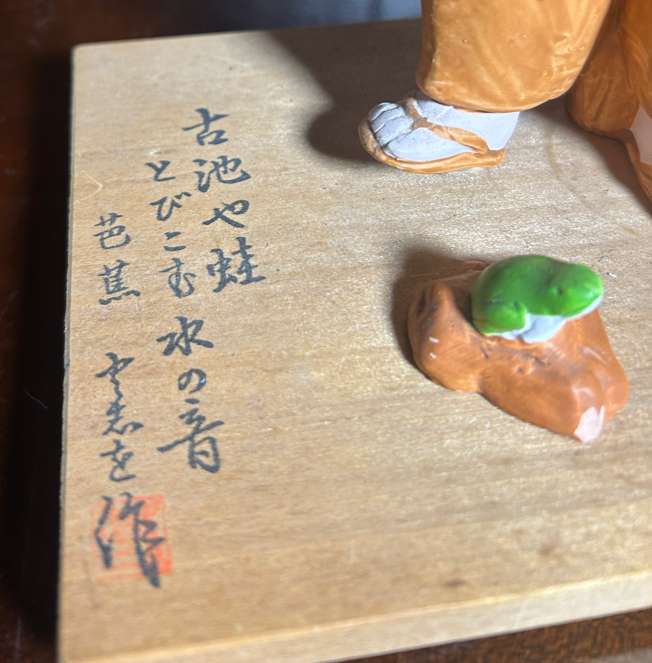 古池や蛙
とびこむ水の音
芭蕉
作